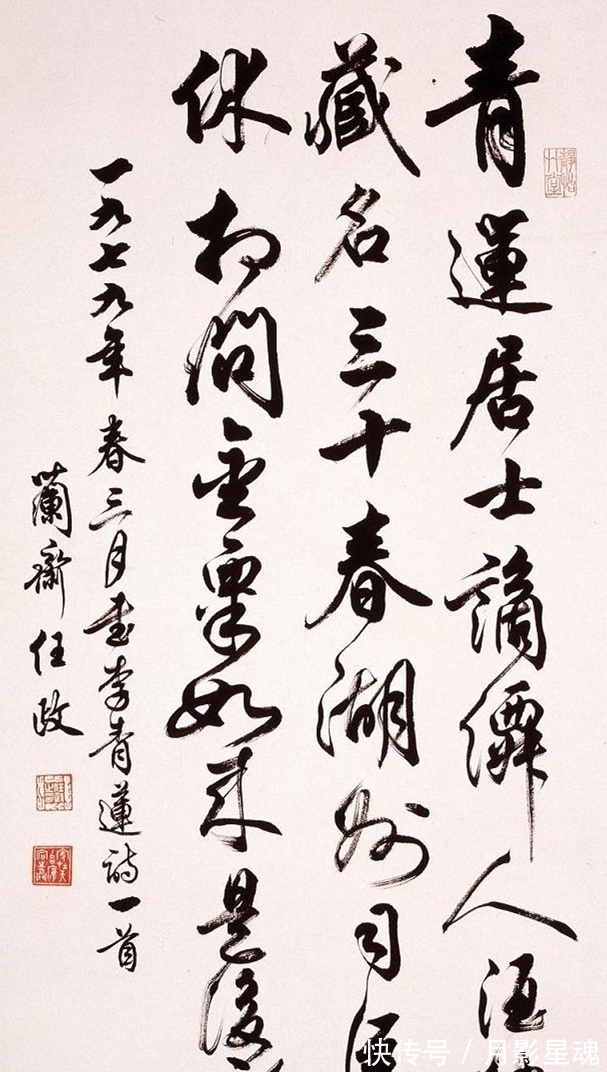 青蓮居士謫僊人酒
藏名三十春湖州司酒
休相問金粟如來是後
一九七九年春三月書李青蓮詩一首
蘭齋任政
快传号 / 月影星魂